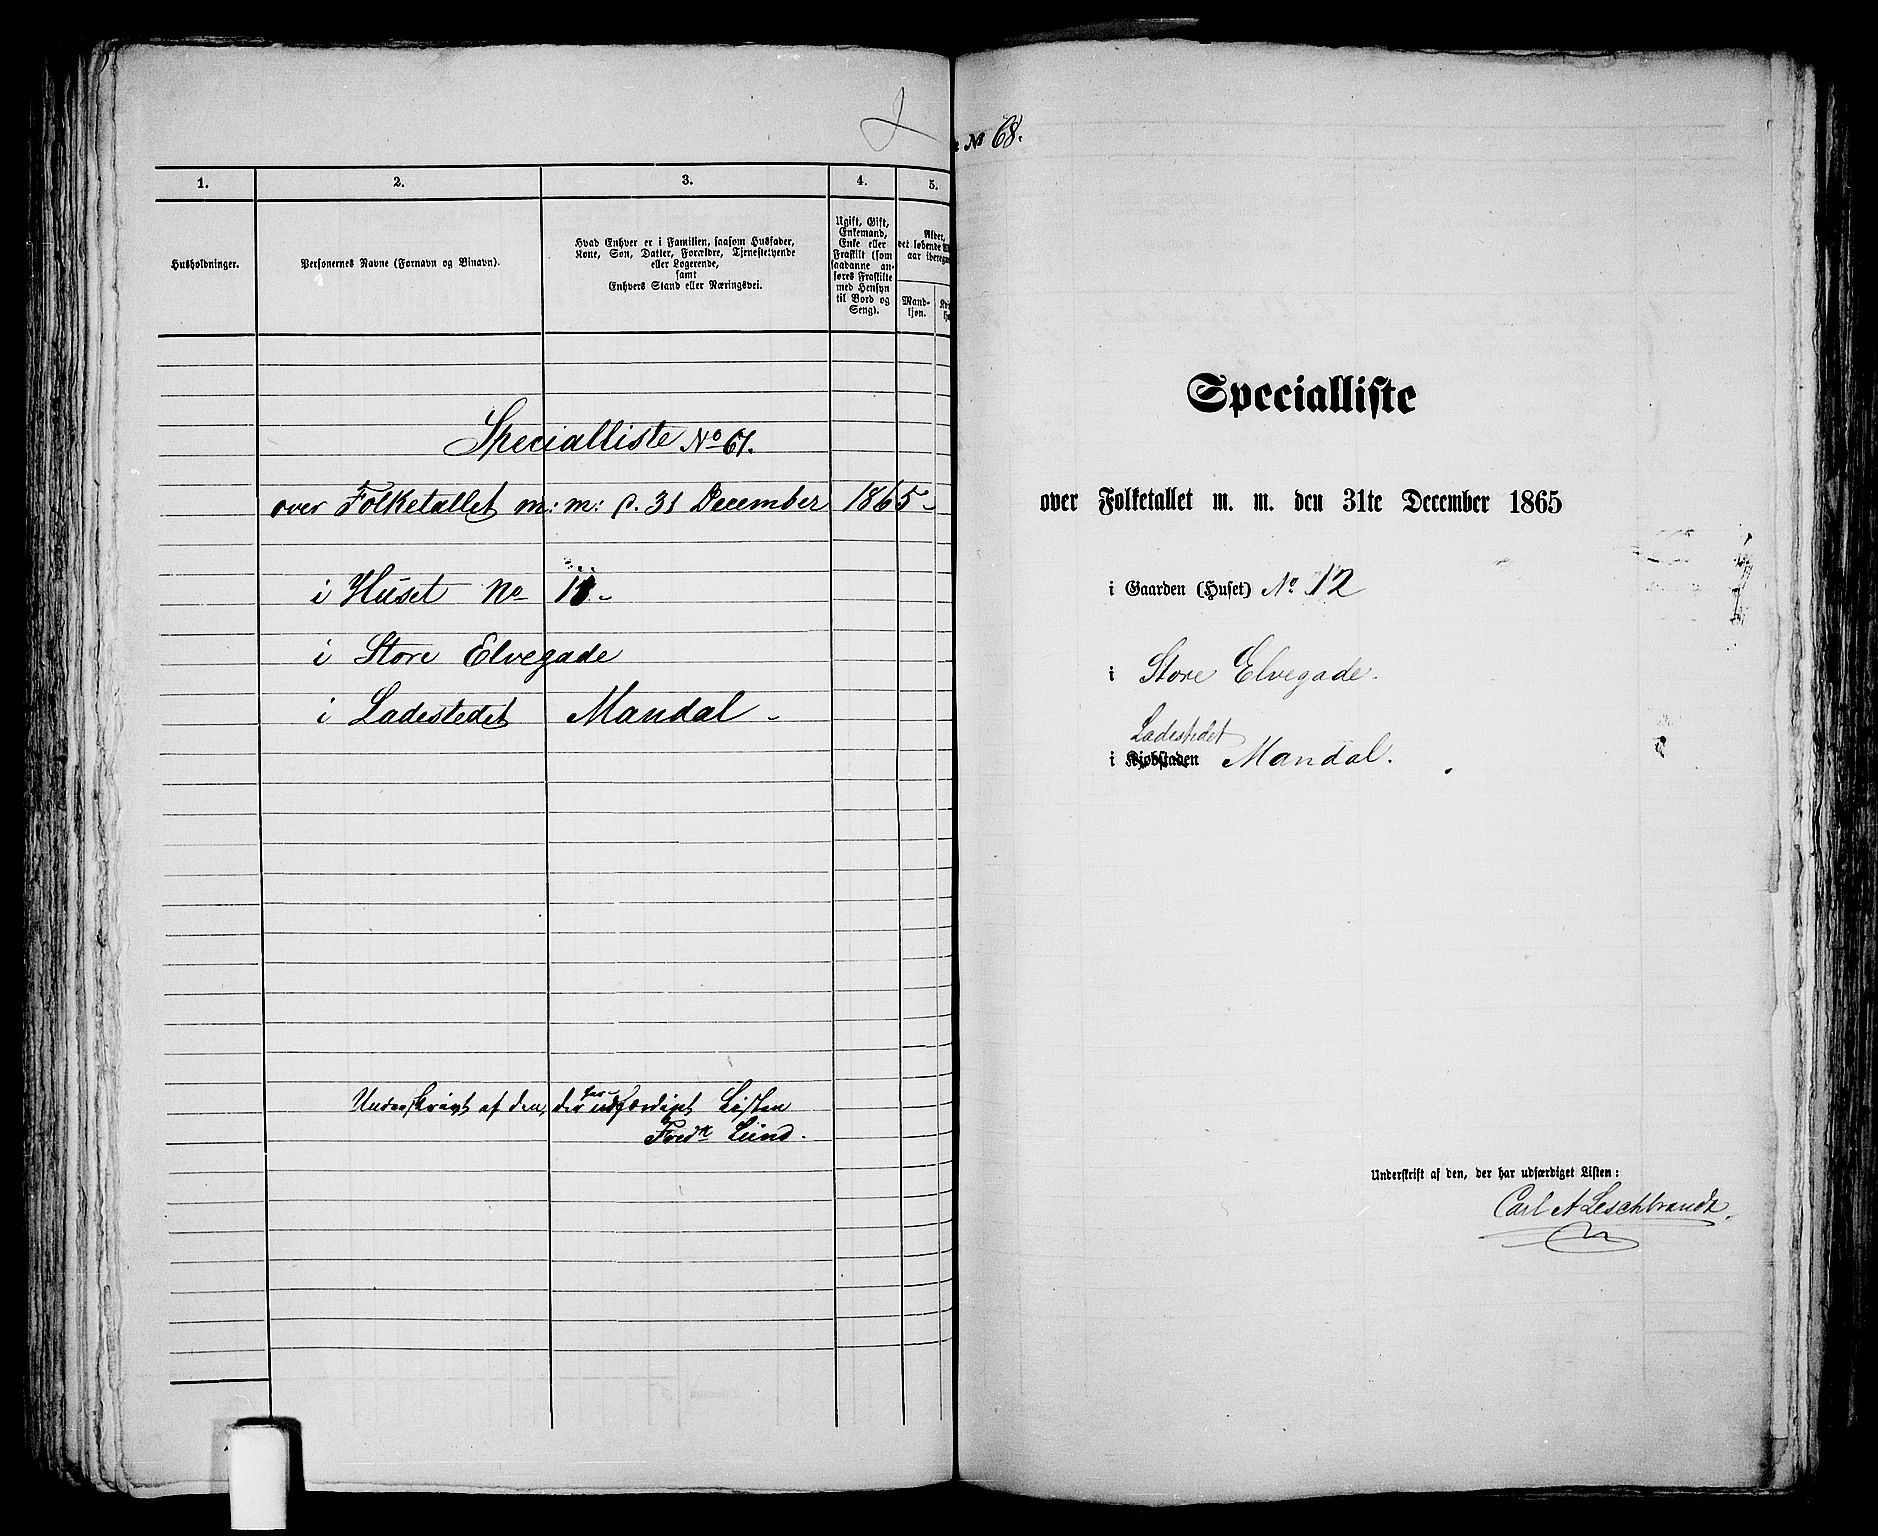 1.
2.
3.
4.
5.
Husholdninger.
Personernes Navne (Fornavn og Binavn).
Hvad Enhver er i Familien, saasom Husfader,
Kone, Søn, Datter, Forældre, Tjenestetyende
eller Logerende,
samt
Enhvers Stand eller Næringsvei.
Ugift, Gift,
Enkemand,
Enke eller
Fraskilt (som
saadanne an-
føres Fraskilte
med Hensyn
til Bord og
Seng).
Alder,
det løbende
aar
Mand-
kjøn.
Specialliste No 67.
over Folketallet m: m: d. 31 December 1865
i Huset No 11
i Store Elvegade
i Ladestedet Mandal
Underskrivt af den, der har udfærdiget Listen
Fredk Lund.
No 68.
Specialliste
over Folketallet m. m. den 31te December 1865
i Gaarden (Huset) No 12
i Store Elvegade.
Ladestedet
i Kjøbstaden Mandal.
Underskrift af den, der har udfærdiget Listen:
Carl A Leschbrandt.